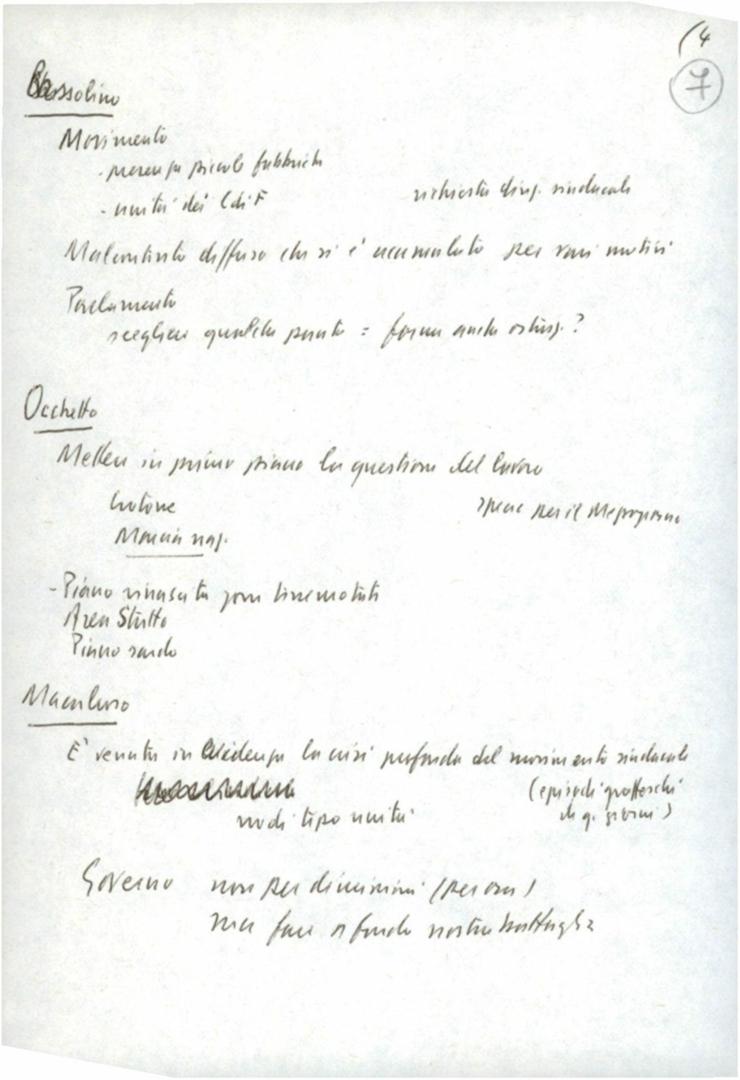 (4
7
Bassolino
Movimento
- presenza piccole fabbriche
- unità dei CdiF
richiesta sindacale
Malcontento diffuso che si è accumulato per vari motivi
Parlamento
scegliere qualche punto = forma anche ostruz.?
Occhetto
Mettere in primo piano la questione del lavoro
Crotone
spese per il Mezzogiorno
Marcia naz.
- Piano rinascita zone terremotate
Area Stretto
Piano sardo
Macaluso
È venuta in evidenza la crisi profonda del movimento sindacale
(episodi grotteschi
di q. giorni)
nodi tipo unità
Governo non per dimissioni (per ora)
ma fare a fondo nostra battaglia